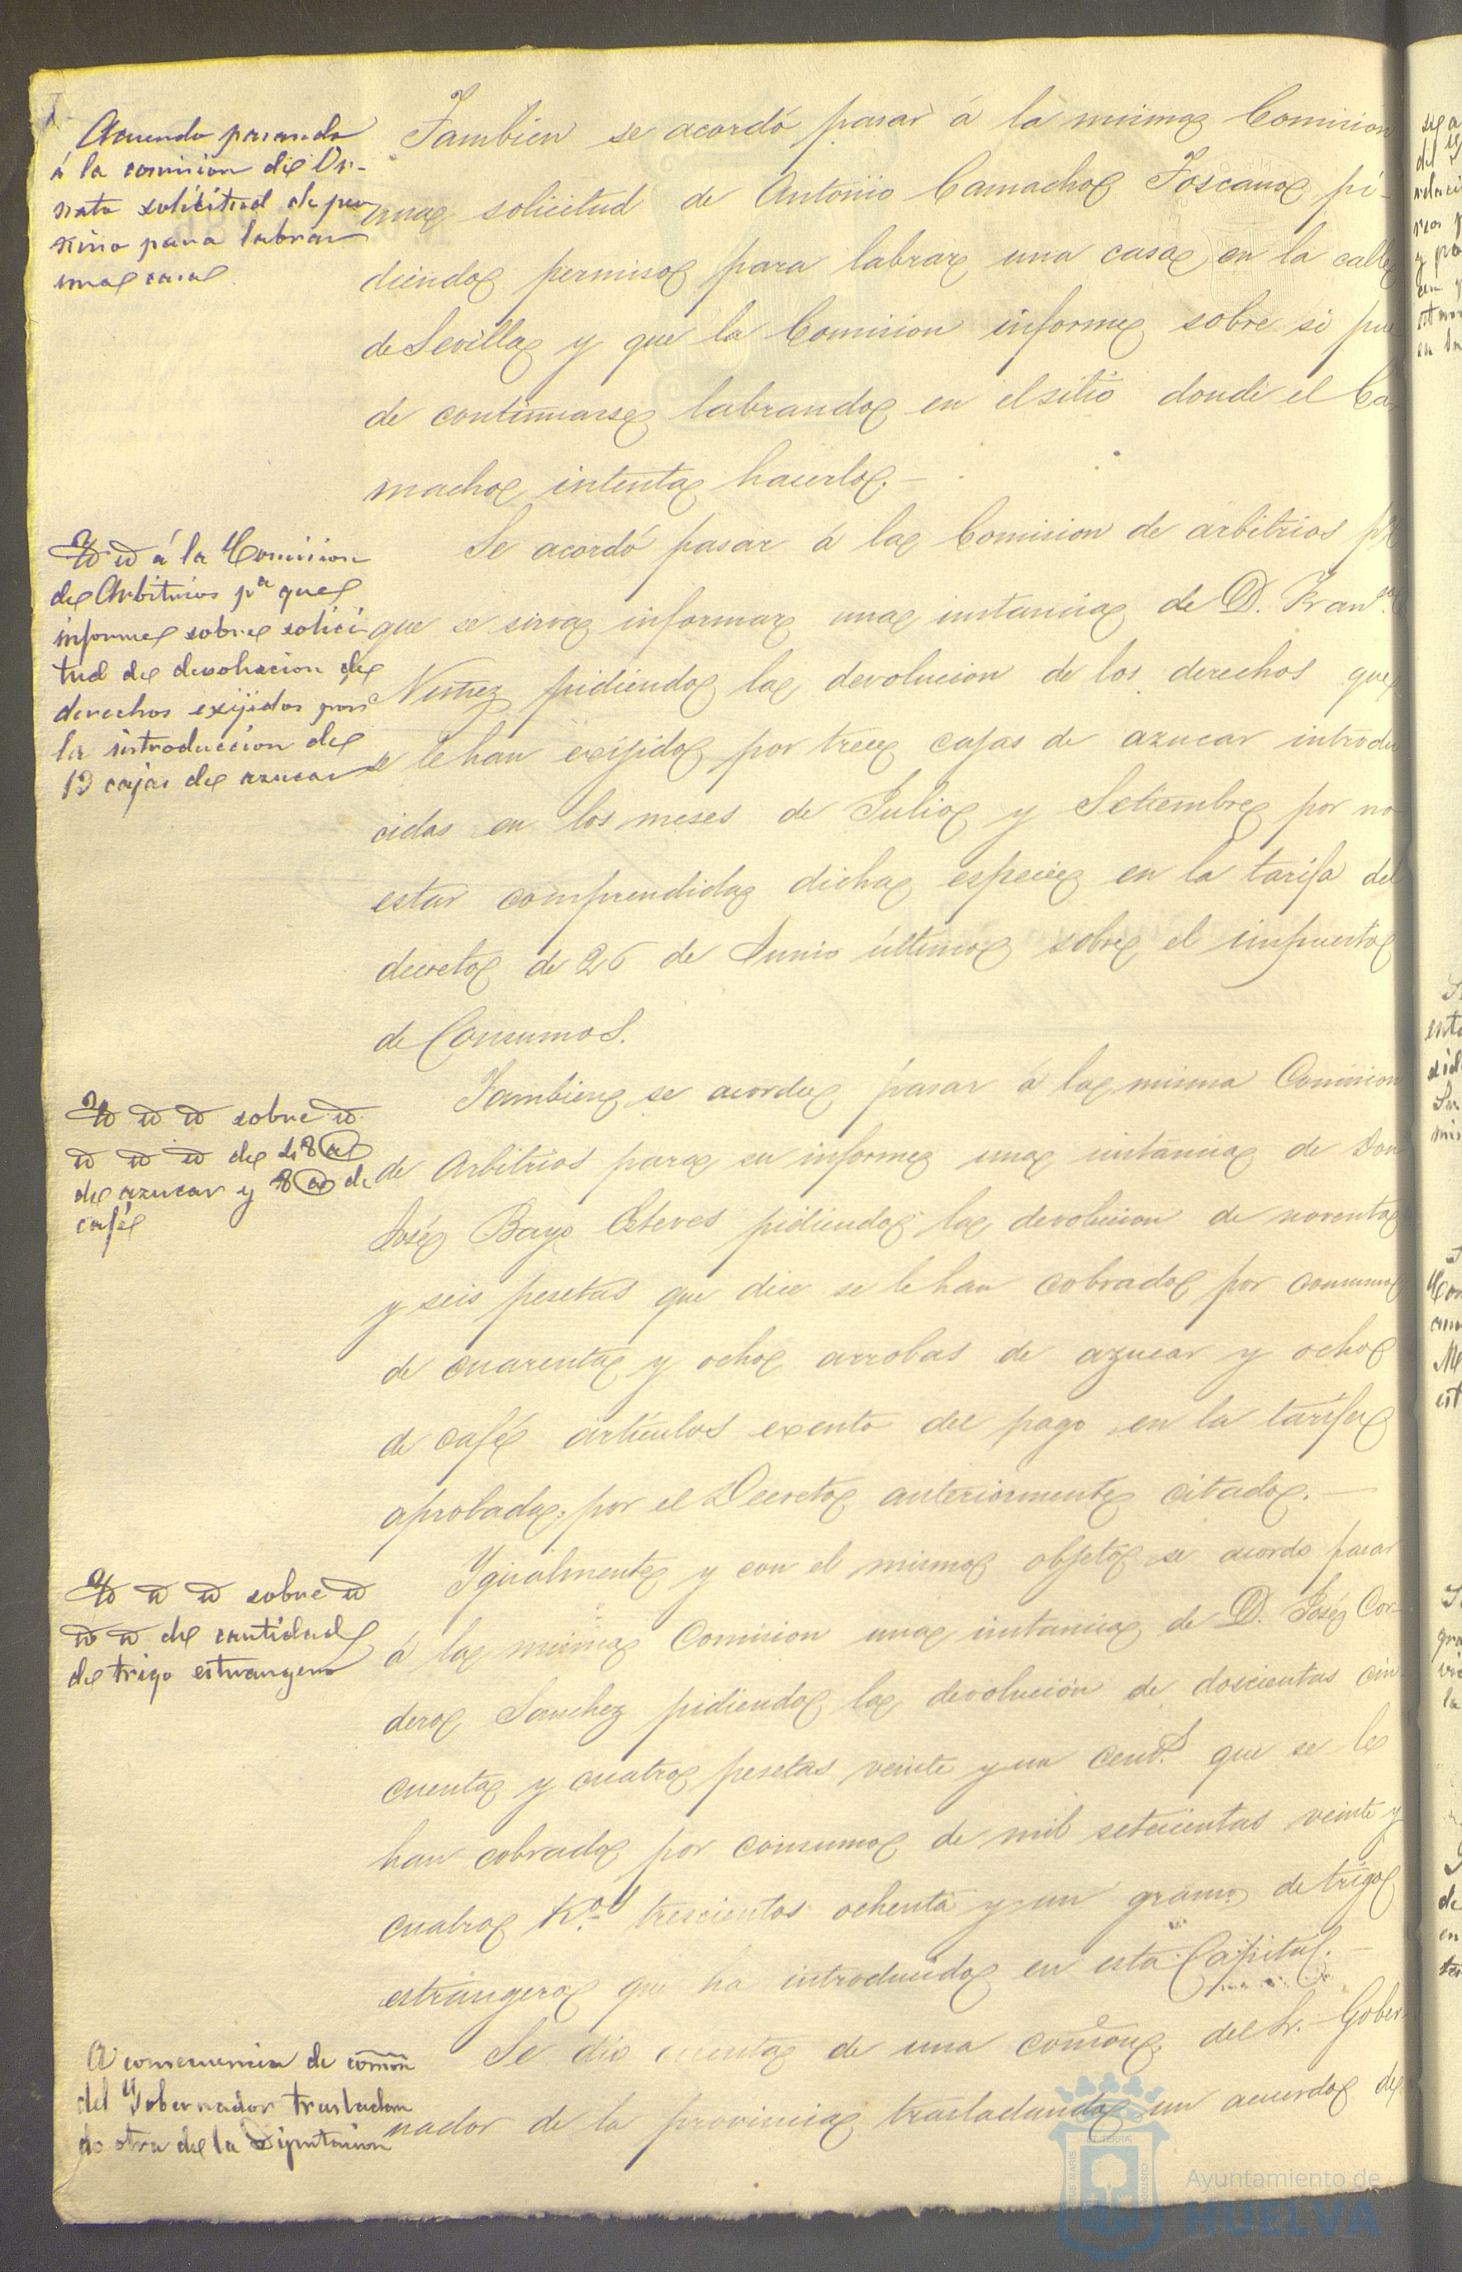 Acuerdo pasando
á la comision de Or-
nato solicitud de per
miso para labrar
una casa
Tambien se acordó pasar á la misma Comision
una solicitud de Antonio Camacho Toscano pi-
diendo permiso para labrar una casa en la calle
de Sevilla y que la Comision informe sobre si pue
de continuarse labrando en el sitio donde el Ca
macho intenta hacerlo.—
Yd id á la Comision
de Arbitrios pª que
informe sobre solici
tud de devolucion de
derechos exijidos por
la introduccion de
13 cajas de azucar
Se acordó pasar á la Comision de arbitrios pª
que se sirva informar una instancia de D. Franco
Nuñez pidiendo la devolucion de los derechos que
se le han exijido por trece cajas de azucar introdu
cidas en los meses de Julio y Setiembre por no
estar comprendida dicha especie en la tarifa del
decreto de 26 de Junio último sobre el impuesto
de Consumos.
Yd id id sobre id
id id id de 48 @
de azucar y 8 @ de
café
Tambien se acordó pasar á la misma Comision
de Arbitrios para su informe una instancia de Don
José Bayo Esteves pidiendo la devolucion de noventa
y seis pesetas que dice se le han cobrado por consumo
de cuarenta y ocho arrobas de azucar y ocho
de café artículos exento del pago en la tarifa
aprobada por el Decreto anteriormente citado.—
Yd id id sobre id
id id de cantidad
de trigo estrangero
Ygualmente y con el mismo objeto se acordo pasar
á la misma Comision una instancia de D. José Cor-
dero Sanchez pidiendo la devolución de doscientas cin
cuenta y cuatro pesetas veinte y un cents que se le
han cobrado por consumo de mil setecientas veinte y
cuatro Kos trescientos ochenta y un gramo de trigo
estrangero que ha introducido en esta Capital.—
A consecuencia de comon
del Gobernador trasladan
do otra de la Diputacion
Se dio cuenta de una comon del Sr. Gober-
nador de la provincia trasladando un acuerdo de
Ayuntamiento de
HUELVA